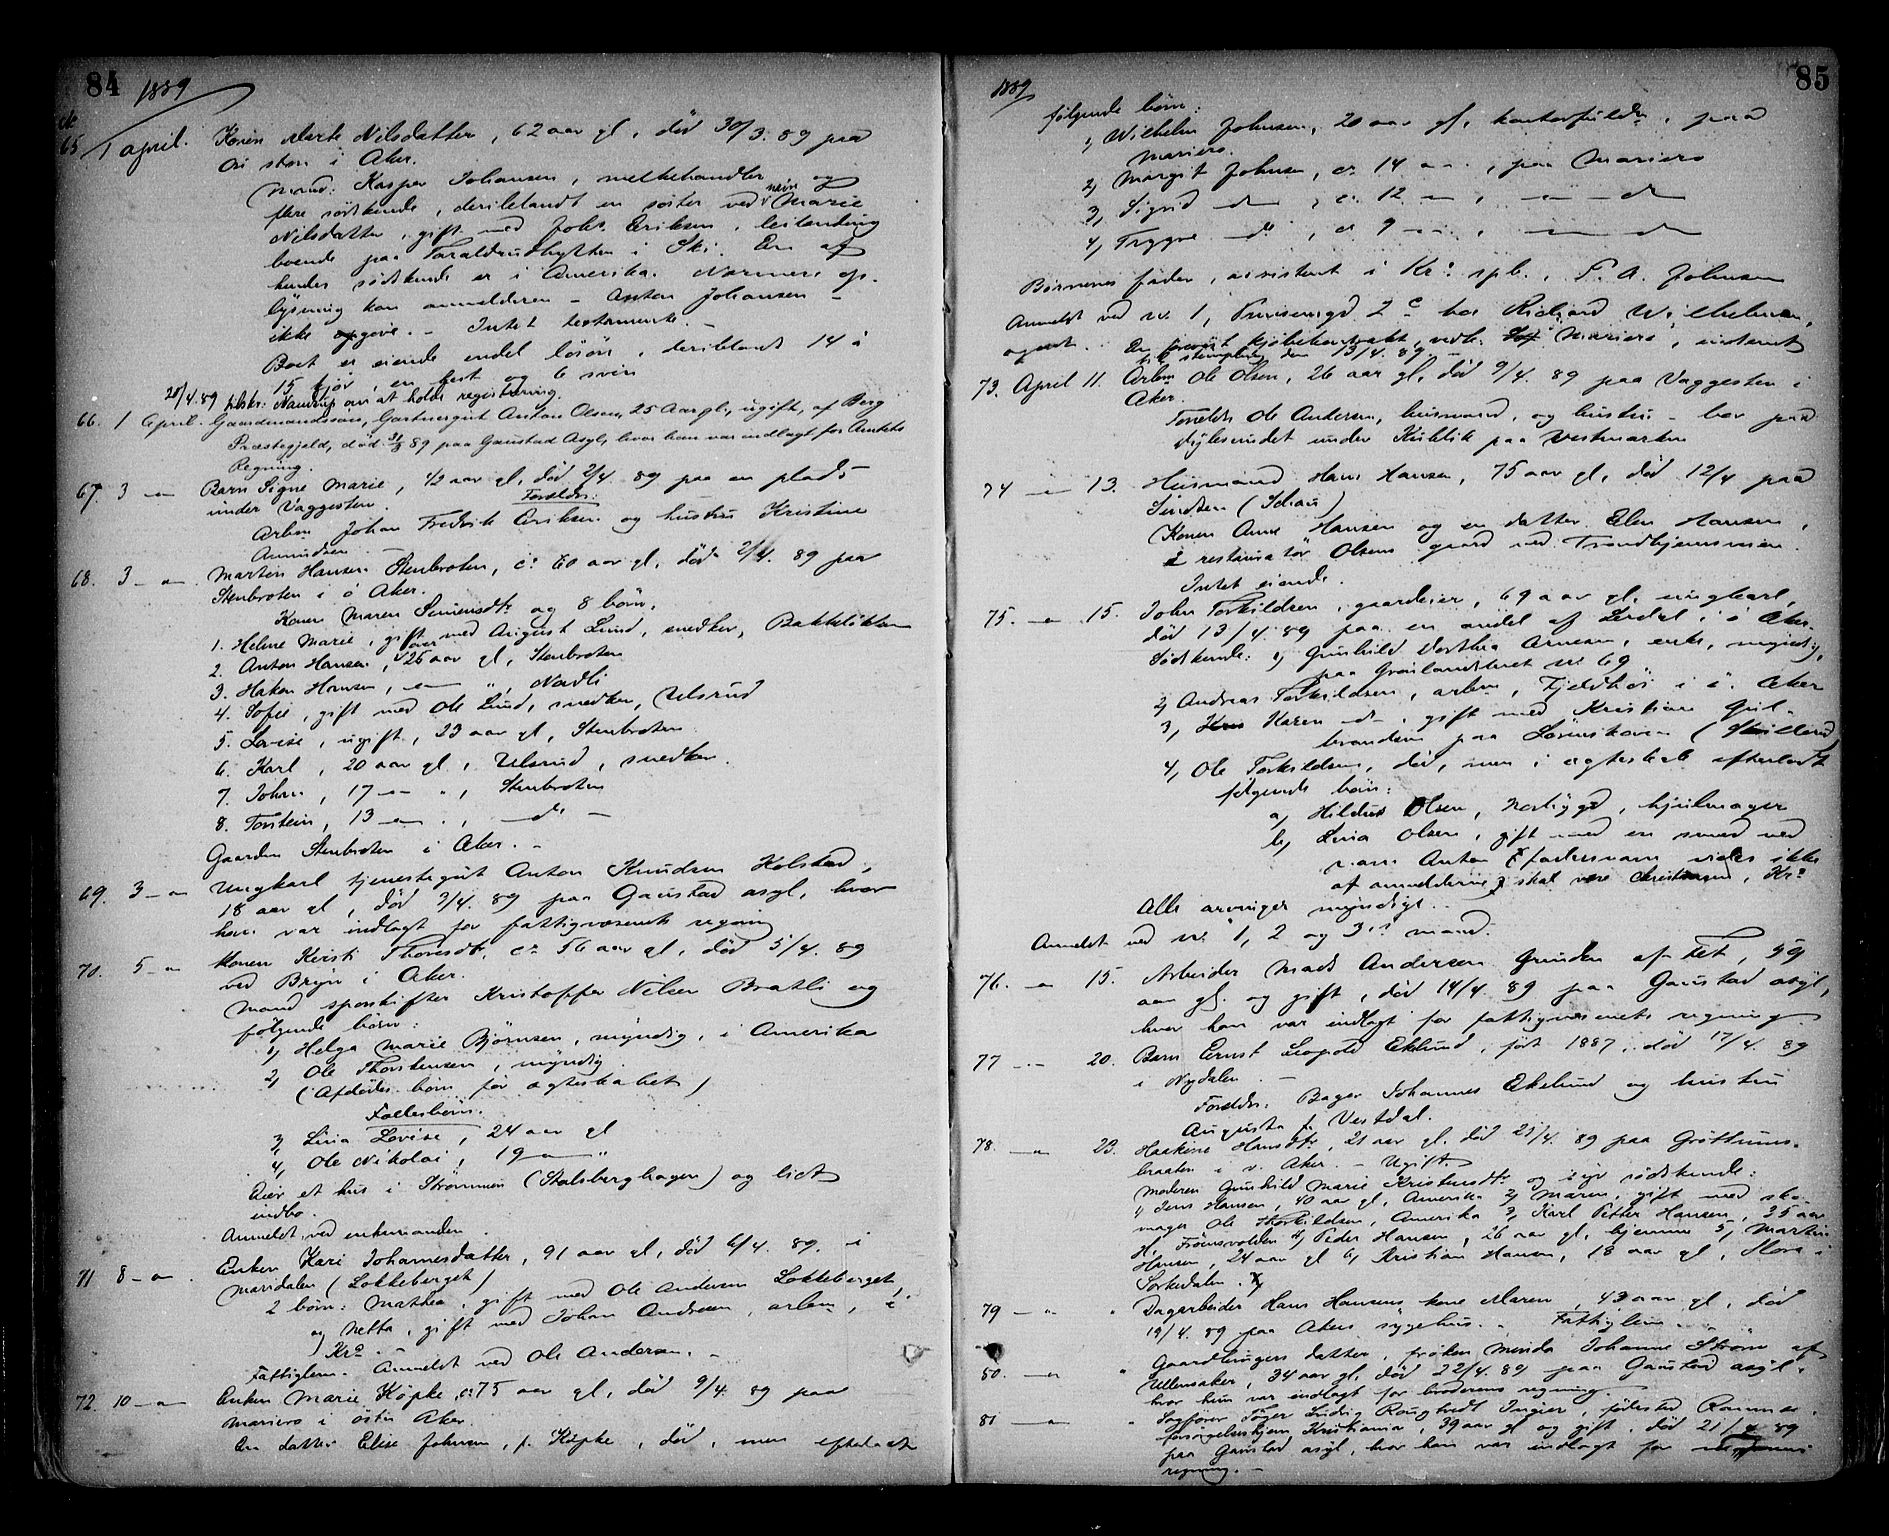 84 1889
65 1 april. Konen Marte Nilsdatter, 62 aar gl, død 30/3. 89 paa
i Aker.
Mand: Kasper Johansen, melkehandler og
flere södskende, deriblandt en söster ved navn Marie
Nilsdatter, gift med Johs. Eriksen, leilending
boende paa Taraldrudhytten i Ski. En af
hendes södskende er i Amerika. Nærmere op-
lysning kan anmelderen – Anton Johansen –
ikke opgive. – Intet testamente. –
Boet er eiende endel lösöre, deriblandt 14 à
15 kjør, en hest og 6 svin
20/4. 89 om at holde registrering.
66. 1 April. Gaardmandssøn, Gartnergut Anton Olsen, 25 Aar gl., ugift, af Berg
Præstegjeld, død 31/3 89 paa Gaustad Asyl, hvor han var indlagt for Amtets
Regning.
67. 3 – " – Barn Signe Marie, 1/2 aar gl, död 2/4. 89 paa en plads
under Vaggesten.
Forældre:
Arbm Johan Fredrik Eriksen og hustru Kristine
Amundsen –
68. 3 – " – Martin Hansen Stenbroten, ca 60 aar gl, död 2/4. 89 paa
Stenbroten i ö Aker.
Konen Maren Simensdtr og 8 börn.
1. Helene Marie, gift med August Lund, snedker, Bakkeløkken
2. Anton Hansen, over 25 aar gl, Stenbroten
3. Hakon Hansen, – " – ", Nordli
4. Sofie, gift med Ole Lund, snedker, Ulsrud
5. Lovise, ugift, 23 aar gl, Stenbroten
6. Karl, 20 aar gl, Ulsrud, snedker.
7. Johan, 17 – " – ", Stenbroten
8. Torstein, 13 – " – ", – do –
Gaarden Stenbroten i Aker. –
69. 3 – " Ungkarl tjenestegut Anton Knudsen Kolstad,
18 aar gl, död 3/4. 89 paa Gaustad asyl, hvor
han var indlagt for fattigvæsenets regning
70. 5 – " Konen Kirsti Thoresdtr. ca 56 aar gl, död 5/4. 89
ved Bryn i Aker.
Mand sporskifter Kristoffer Nilsen Bratli og
følgende börn:
1) Helga Marie Björnsen, myndig, i Amerika
2) Ole Thorstensen, myndig
(Afdödes börn för ægteskabet)
Fællesbörn.
3) Lina Lovise, 24 aar gl
4) Ole Nikolai, 19 – " – "
Eier et hus i Strömmen (Stalsberghagen) og lidt
indbo.
Anmeldt ved enkemanden
71 8 – " – Enken Kari Johannesdatter, 91 aar gl, död 6/4. 89. i
Maridalen (Lokkeberget)
2 börn: Mathea, gift med Ole Andersen Lokkeberget,
og Netta, gift med Johan Andersen, arbm, i
Kra –
Fattiglem. Anmeldt ved Ole Andersen. –
72. 10 – " – Enken Marie Köpke, ca 75 aar gl, död 9/4. 89 paa
Mariero i östre Aker.
En datter Elise Johnsen, f. Köpke, död, men efterladt
1889 85
følgende börn:
1) Wilhelm Johnsen, 20 aar gl, kontorfuldm, paa
Mariero.
2) Margit Johnsen, ca 14 – " – ", paa Mariero
3) Sigrid – do – , ca. 12 – " , – " – do
4) Trygve – do , ca 9 – " – , – " – do
Børnenes fader, assistent i Kr.a spb., P. A. Johnsen
Anmeldt ved nr. 1, Prinsensgd 2 c hos Richard Wilhelmsen,
agent. En kjøbekontrakt, vedk. Mariero, indsendt
til stempling den 13/4. 89 –
73. April 11. Arbm Ole Olsen, 26 aar gl, död 9/4. 89 paa Vaggesten i
Aker.
Forældre Ole Andersen, husmand, og hustru – bor paa
under paa Vestmarken
74 – " – 13. Husmand Hans Hansen, 75 aar gl, död 12/4 paa
Konen Anne Hansen og en datter Elen Hansen,
i restauratör Olsens gaard ved Trondhjemsveien.
Intet eiende.
75. – " – 15. John Torkildsen, gaardeier, 69 aar gl, ungkarl,
död 13/4. 89 paa en andel af Lindal, i ö Aker.
Södskende: 1) Gunhild Dorthea Arnesen, enke, myndig,
paa Grønlandsleret nr 69.
2) Andreas Torkildsen, arbm, Fjeldhøi i ö. Aker
3) Karen do, gift med Kristian Gul-
brandsen paa Lørenskoven (
4) Ole Torkildsen, död, men i ægteskab efterladt
følgende börn:
a) Hildus Olsen, Nordbygd, hjulmager
b) Lina Olsen, gift med en smed ved
navn Anton (fadersnavn vides ikke
af anmelderne) skal være Christiansen, Kra
Alle arvinger myndige. –
Anmeldt ved nr. 1, 2 og 3's mand.
76. – " 15. Arbeider Mads Andersen Grinden af Fet, 59
aar gl. og gift, död 14/4. 89 paa Gaustad asyl,
hvor han var indlagt for fattigvæsenets regning.
77 – " – 20. Barn Ernst Leopold Eklund, föt 1887, död 17/4. 89
i Nydalen. –
Forældre: Bager Johannes Ekelund og hustru
Augusta f. Vestdal.
78. – " 23. Haakine Hansdtr, 21 aar gl. död 21/4. 89 paa Gröttums-
braaten i v. Aker. – Ugift.
Moderen Gunhild Marie Kristensdtr og syv södskende:
1) Jens Hansen, 40 aar gl, Amerika 2) Maren, gift med sko-
mager Ole Thorkildsen, Amerika 3) Karl Petter Hansen, 35 aar
4) Peder Hansen, 26 aar gl, hjemme 5) Martin
Hansen, 24 aar gl 6) Kristian Hansen, 18 aar gl, i
Sørkedalen.
79 – " " Dagarbeider Hans Hansens kone Maren, 43 aar gl, död
19/4. 89 paa Akers sygehus. – Fattiglem. –
80. – " " Gaardbrugers datter, frøken Minda Johanne Ström af
Ullensaker, 34 aar gl, död 22/4. 89 paa Gaustad asyl.
hvor hun var indlagt for broderens regning. –
81 – " " Sagfører Ludvig Rougtvedt Ingier, födested Ramme,
forsørgelseshjem Kristiania, 39 aar gl og gift, död 21/4. 89
paa Gaustad asyl, hvor han var indlagt for
regning. –